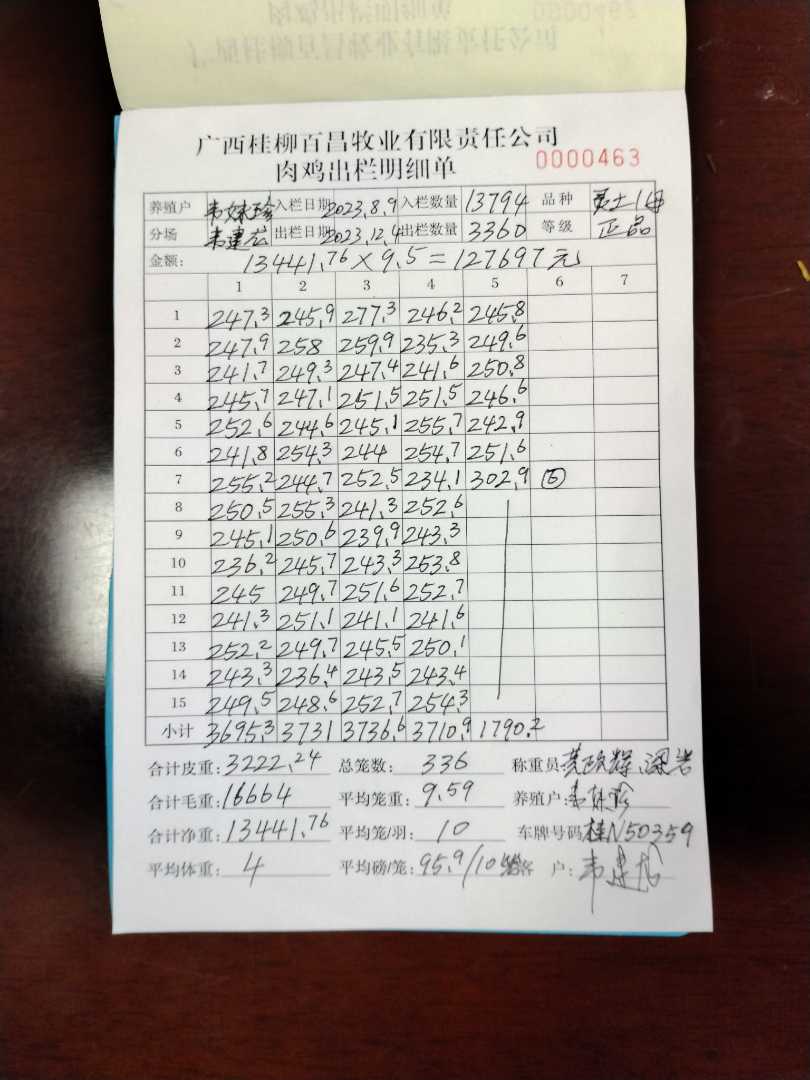 广西桂柳百昌牧业有限责任公司
肉鸡出栏明细单 0000463
养殖户 韦妹珍 入栏日期 2023.8.9 入栏数量 13794 品种
分场 韦建宏 出栏日期 2023.12.4 出栏数量 3360 等级 正品
金额: 13441.76×9.5=127697元
1 2 3 4 5 6 7
1 247.3 245.9 277.3 246.2 245.8
2 247.9 258 259.9 235.3 249.6
3 241.7 249.3 247.4 241.6 250.8
4 245.7 247.1 251.5 251.5 246.6
5 252.6 244.6 245.1 255.7 242.9
6 241.8 254.3 244 254.7 251.6
7 255.2 244.7 252.5 234.1 302.9 ⑥
8 250.5 255.3 241.3 252.6
9 245.1 250.6 239.9 243.3
10 236.2 245.7 243.3 253.8
11 245 249.7 251.6 252.7
12 241.3 251.1 241.1 241.6
13 252.2 249.7 245.5 250.1
14 243.3 236.4 243.5 243.4
15 249.5 248.6 252.7 254.3
小计 3695.3 3731 3736.6 3710.9 1790.2
合计皮重: 3222.24 总笼数: 336 称重员
合计毛重: 16664 平均笼重: 9.59 养殖户: 韦妹珍
合计净重: 13441.76 平均笼/羽: 10 车牌号码 桂N50359
平均体重: 4 平均磅/笼: 95.9/10 客户: 韦建宏